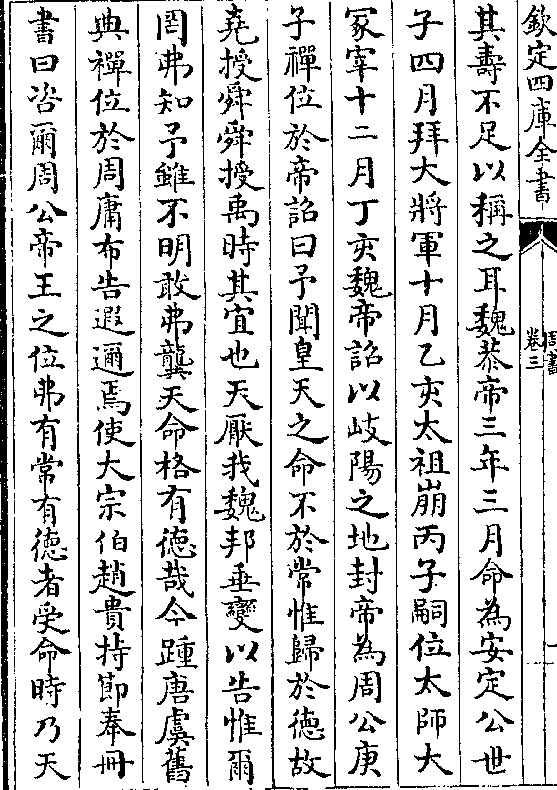 欽定四庫全書
周書
卷三
一
其壽不足以稱之耳魏恭帝三年三月命為安定公世
子四月拜大將軍十月乙亥太祖崩丙子嗣位太師大
冢宰十二月丁亥魏帝詔以岐陽之地封帝為周公庚
子禪位於帝詔曰予聞皇天之命不於常惟歸於徳故
堯授舜舜授禹時其宜也天厭我魏邦垂變以告惟爾
罔弗知予雖不明敢弗龔天命格有徳哉今踵唐虞舊
典禪位於周庸布告遐邇焉使大宗伯趙貴持節奉冊
書曰咨爾周公帝王之位弗有常有徳者受命時乃天